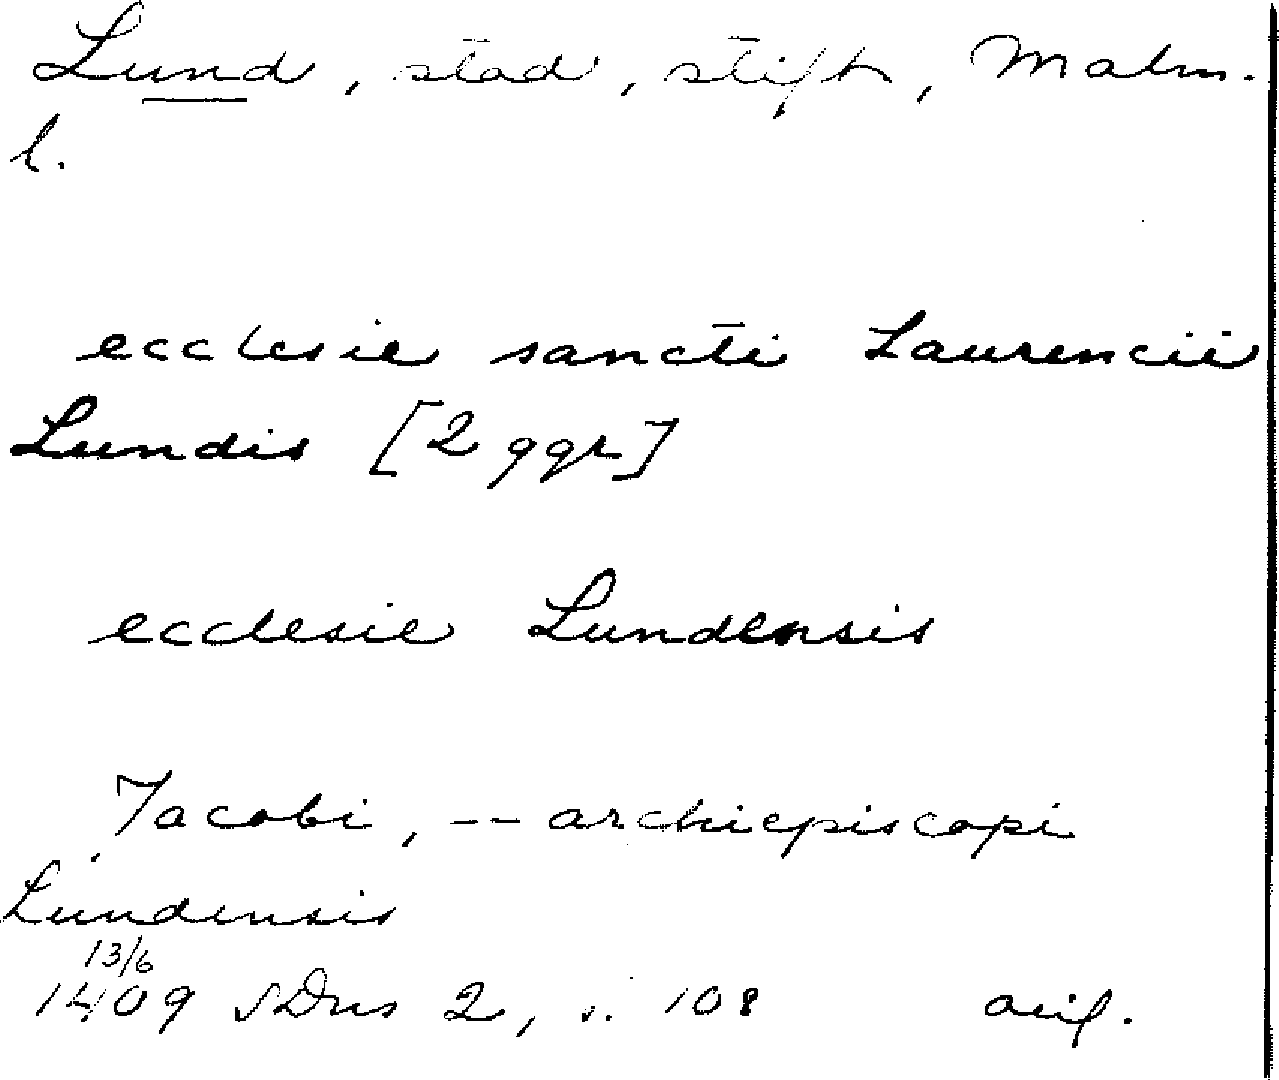 Lund, stad, stift, Malm.
l.
ecclesie sancti Laurencii
Lundis [2 ggr]
ecclesie Lundensis
Jacobi, -- archiepiscopi
Lundensis
13/6
1409 SDns 2, s. 108